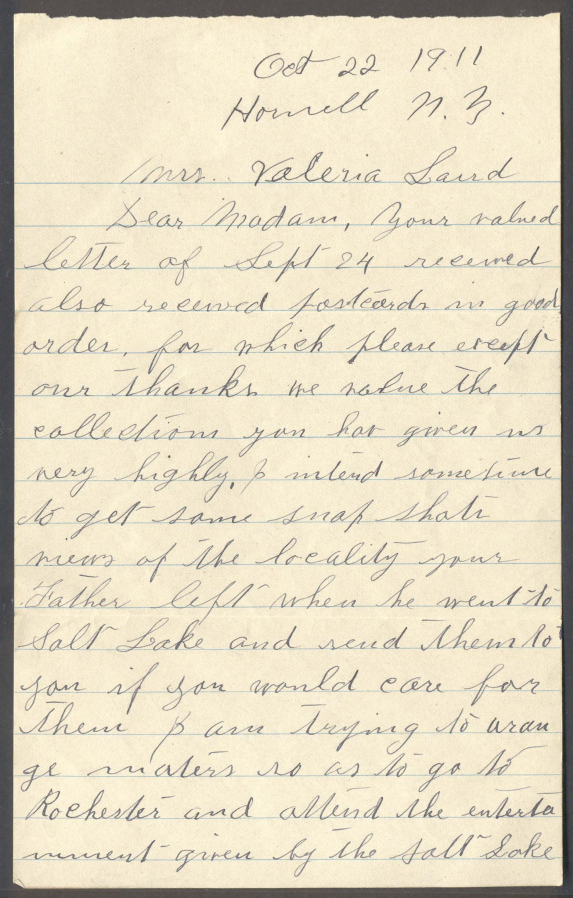 Oct 22 1911
Hornell N.Y.
Mrs. Valeria Laird
Dear Madam, Your valued
letter of Sept 24 received
also received postcards in good
order, for which please except
our thanks we value the
collections you hav given us
very highly, I intend sometime
to get some snap shots
views of the locality your
Father left when he went to
Salt Lake and send them to
you if you would care for
them I am trying to uran
ge maters so as to go to
Rochester and attend the enterta
inment given by the Salt Lake